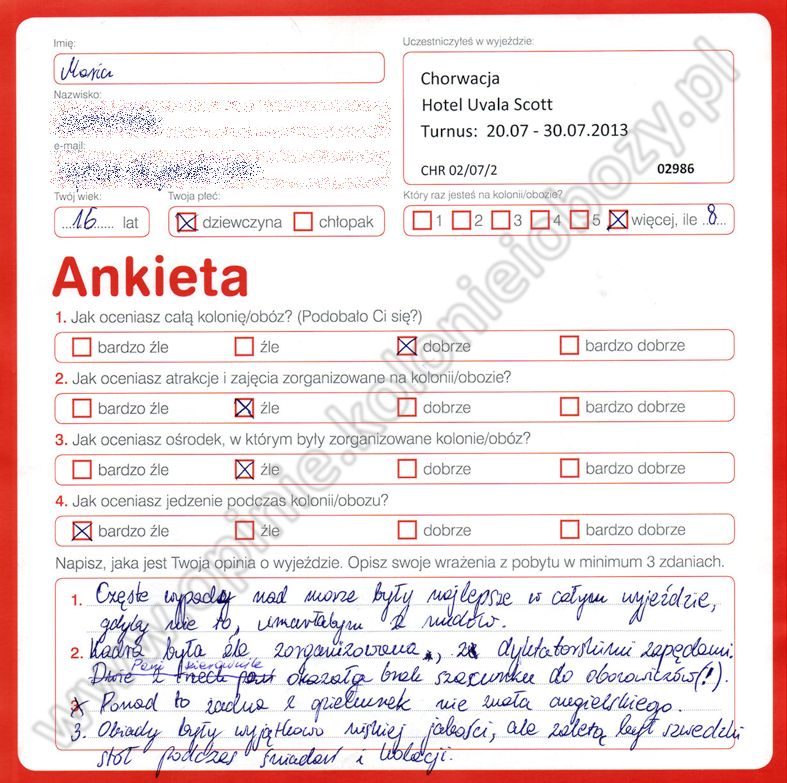 Imię:
Uczestniczyłeś w wyjeździe:
Maria
Chorwacja
Nazwisko:
Hotel Uvala Scott
Turnus: 20.07 - 30.07.2013
e-mail:
CHR 02/07/2 02986
Twój wiek: Twoja płeć: Który raz jesteś na kolonii/obozie?
...16...... lat dziewczyna chłopak 1 2 3 4 5 więcej, ile ..8...
Ankieta
1. Jak oceniasz całą kolonię/obóz? (Podobało Ci się?)
bardzo źle źle dobrze bardzo dobrze
2. Jak oceniasz atrakcje i zajęcia zorganizowane na kolonii/obozie?
bardzo źle źle dobrze bardzo dobrze
3. Jak oceniasz ośrodek, w którym były zorganizowane kolonie/obóz?
bardzo źle źle dobrze bardzo dobrze
4. Jak oceniasz jedzenie podczas kolonii/obozu?
bardzo źle źle dobrze bardzo dobrze
Napisz, jaka jest Twoja opinia o wyjeździe. Opisz swoje wrażenia z pobytu w minimum 3 zdaniach.
1. Częste wypady nad morze były najlepsze w całym wyjeździe,
gdyby nie to, umarłabym z nudów.
2. Kadra była źle zorganizowana, z dyktatorskimi zapędami.
Pani kierownik
okazała brak szacunku do obozowiczów(!).
Ponad to żadna z opiekunek nie znała angielskiego.
3. Obiady były wyjątkowo niskiej jakości, ale zaletą był szwedzki
stół podczas śniadań i kolacji.
www.opinie.kolonieiobozy.pl